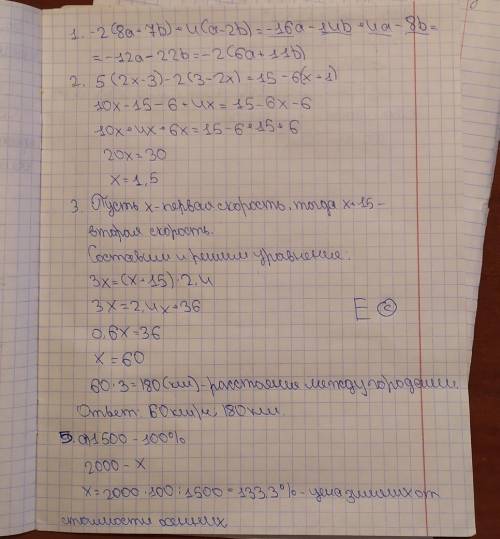 1. -2(8a+7b)+4(a-2b)=-16a-14b+4a-8b=
=-12a-22b=-2(6a+11b)
2. 5(2x-3)-2(3-2x)=15-6(x+1)
10x-15-6+4x=15-6x-6
10x+4x+6x=15-6+15+6
20x=30
x=1,5
3. Пусть x-первая скорость, тогда x+15-
вторая скорость.
Составим и решим уравнение.
3x=(x+15)·2,4
3x=2,4x+36
0,6x=36
x=60
E C
60·3=180(км)-расстояние между городами.
Ответ: 60км/ч, 180км.
5. а)1500-100%
2000-x
x=2000·100:1500=133,3%-цена зимних от
стоимости осенних